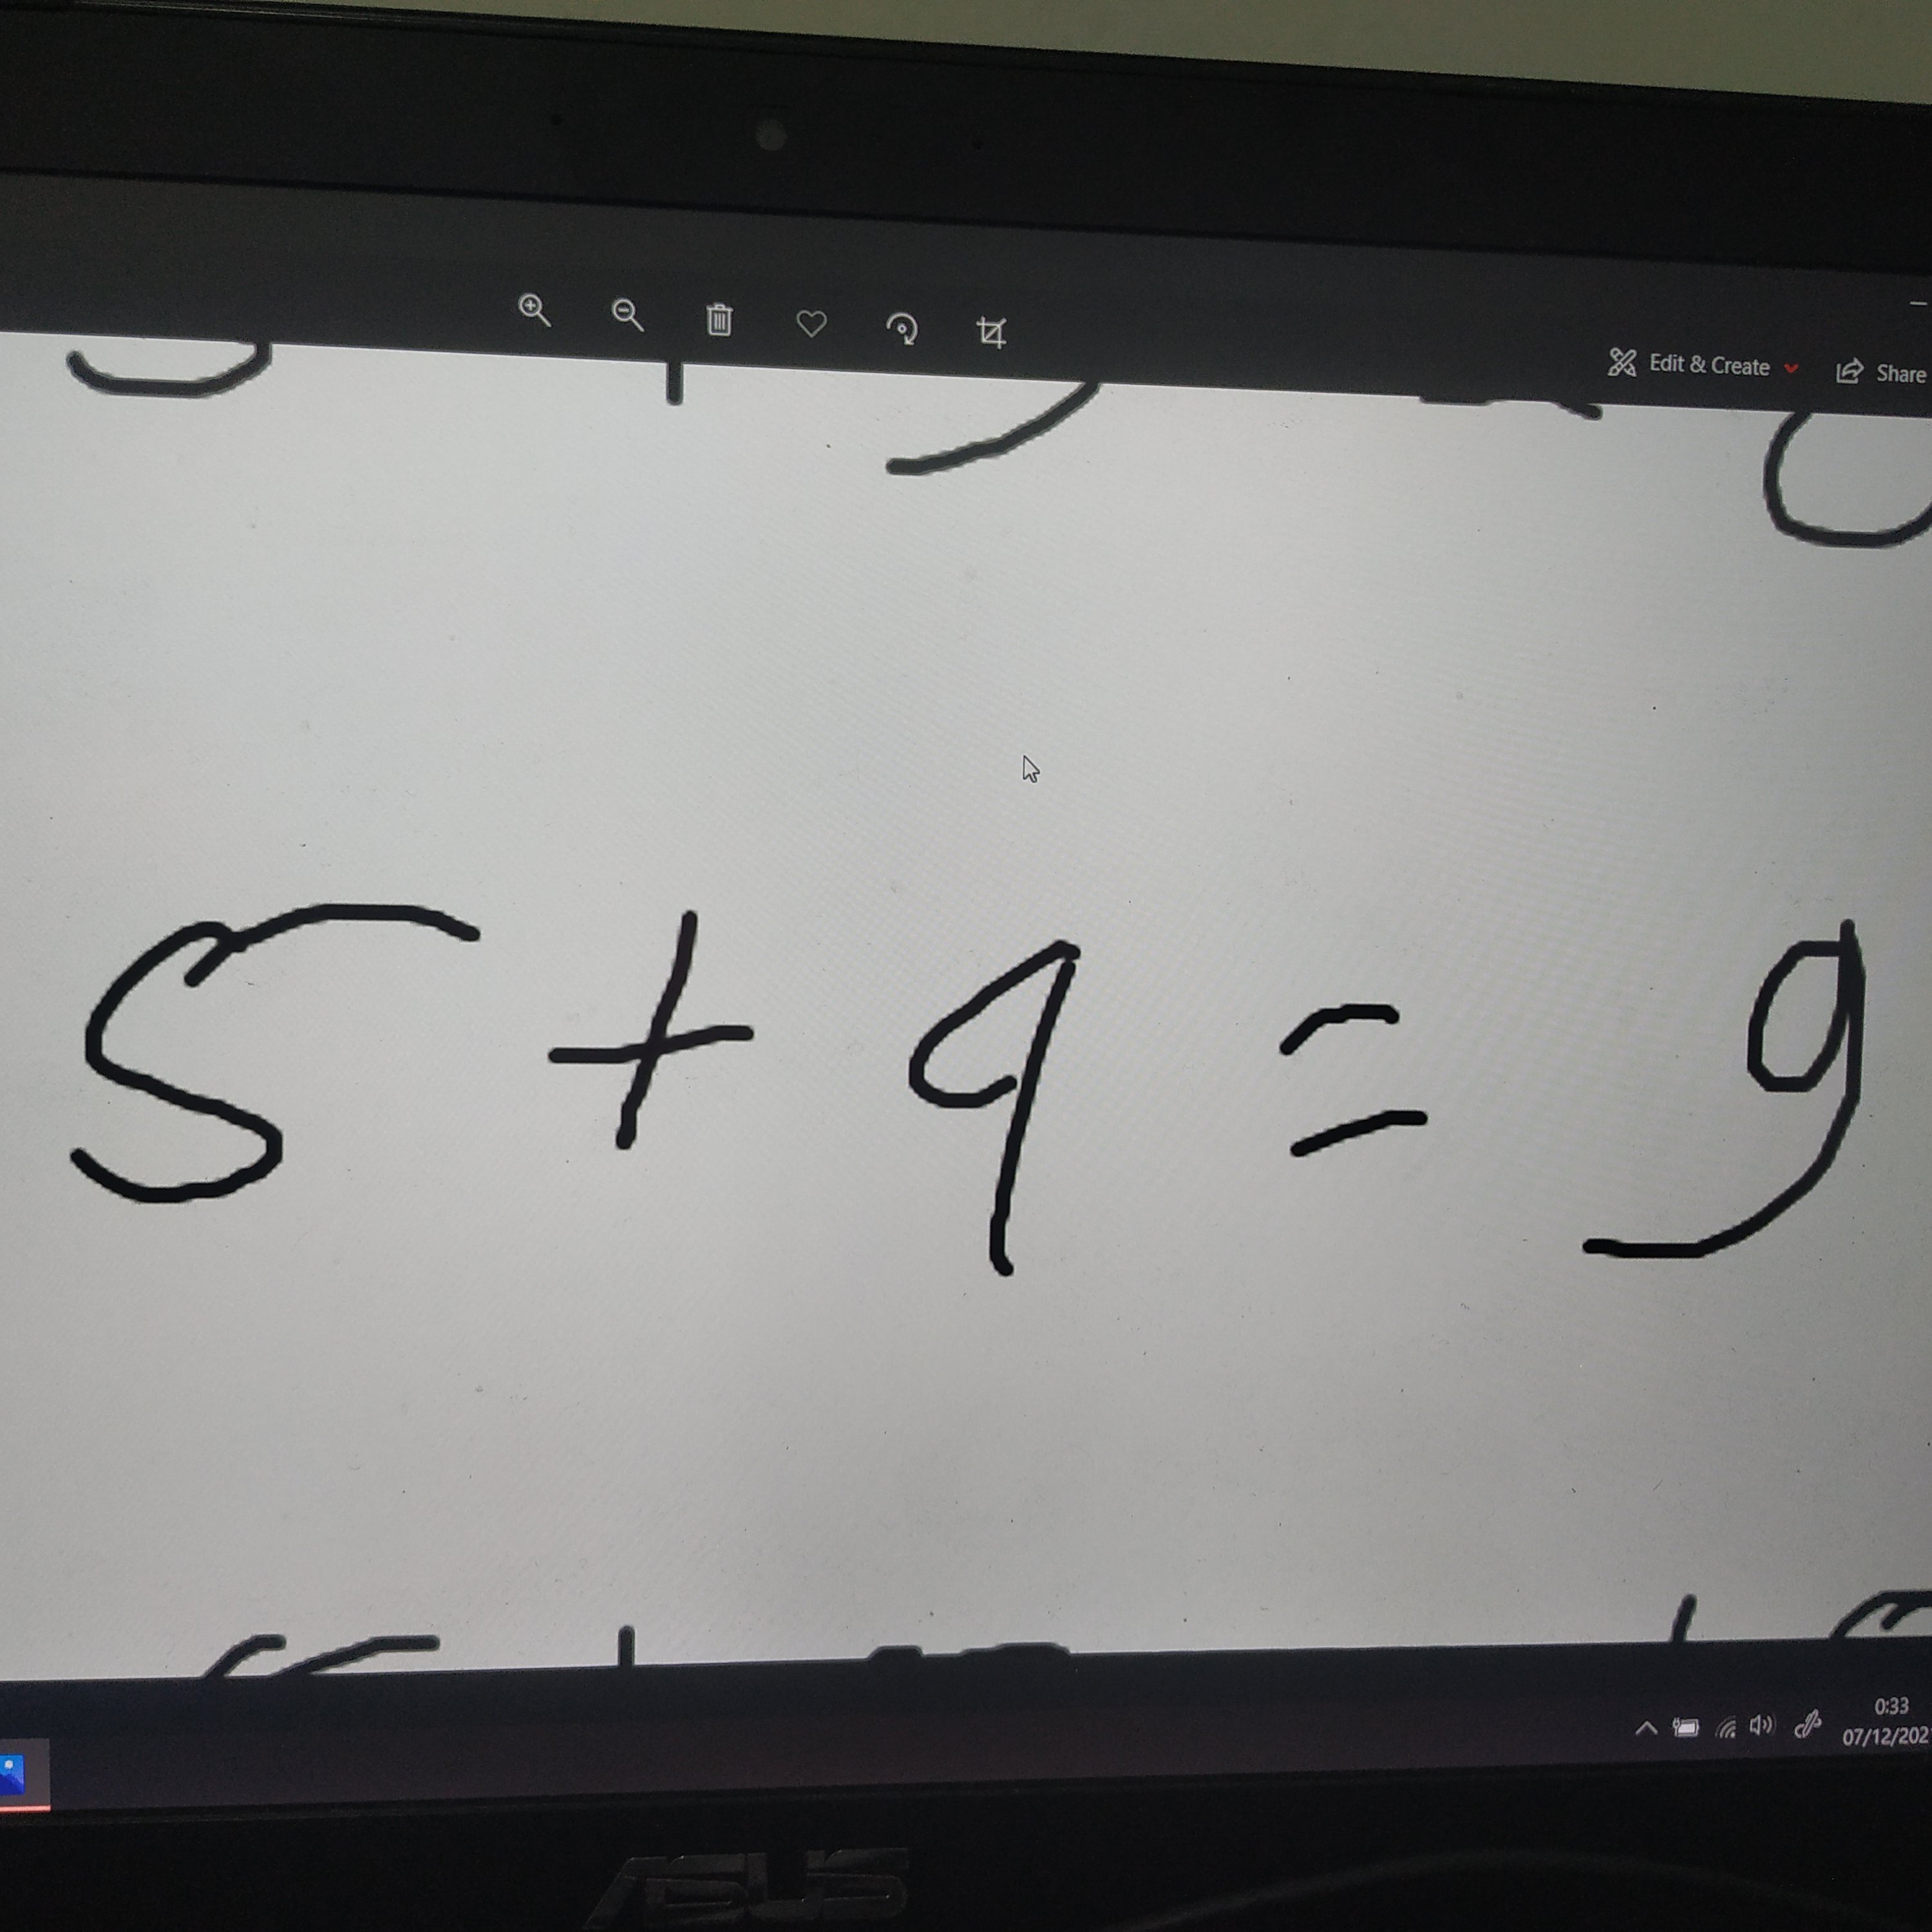 Edit & Create
Share
5 + 4 = 9
0:33
07/12/202
ASUS